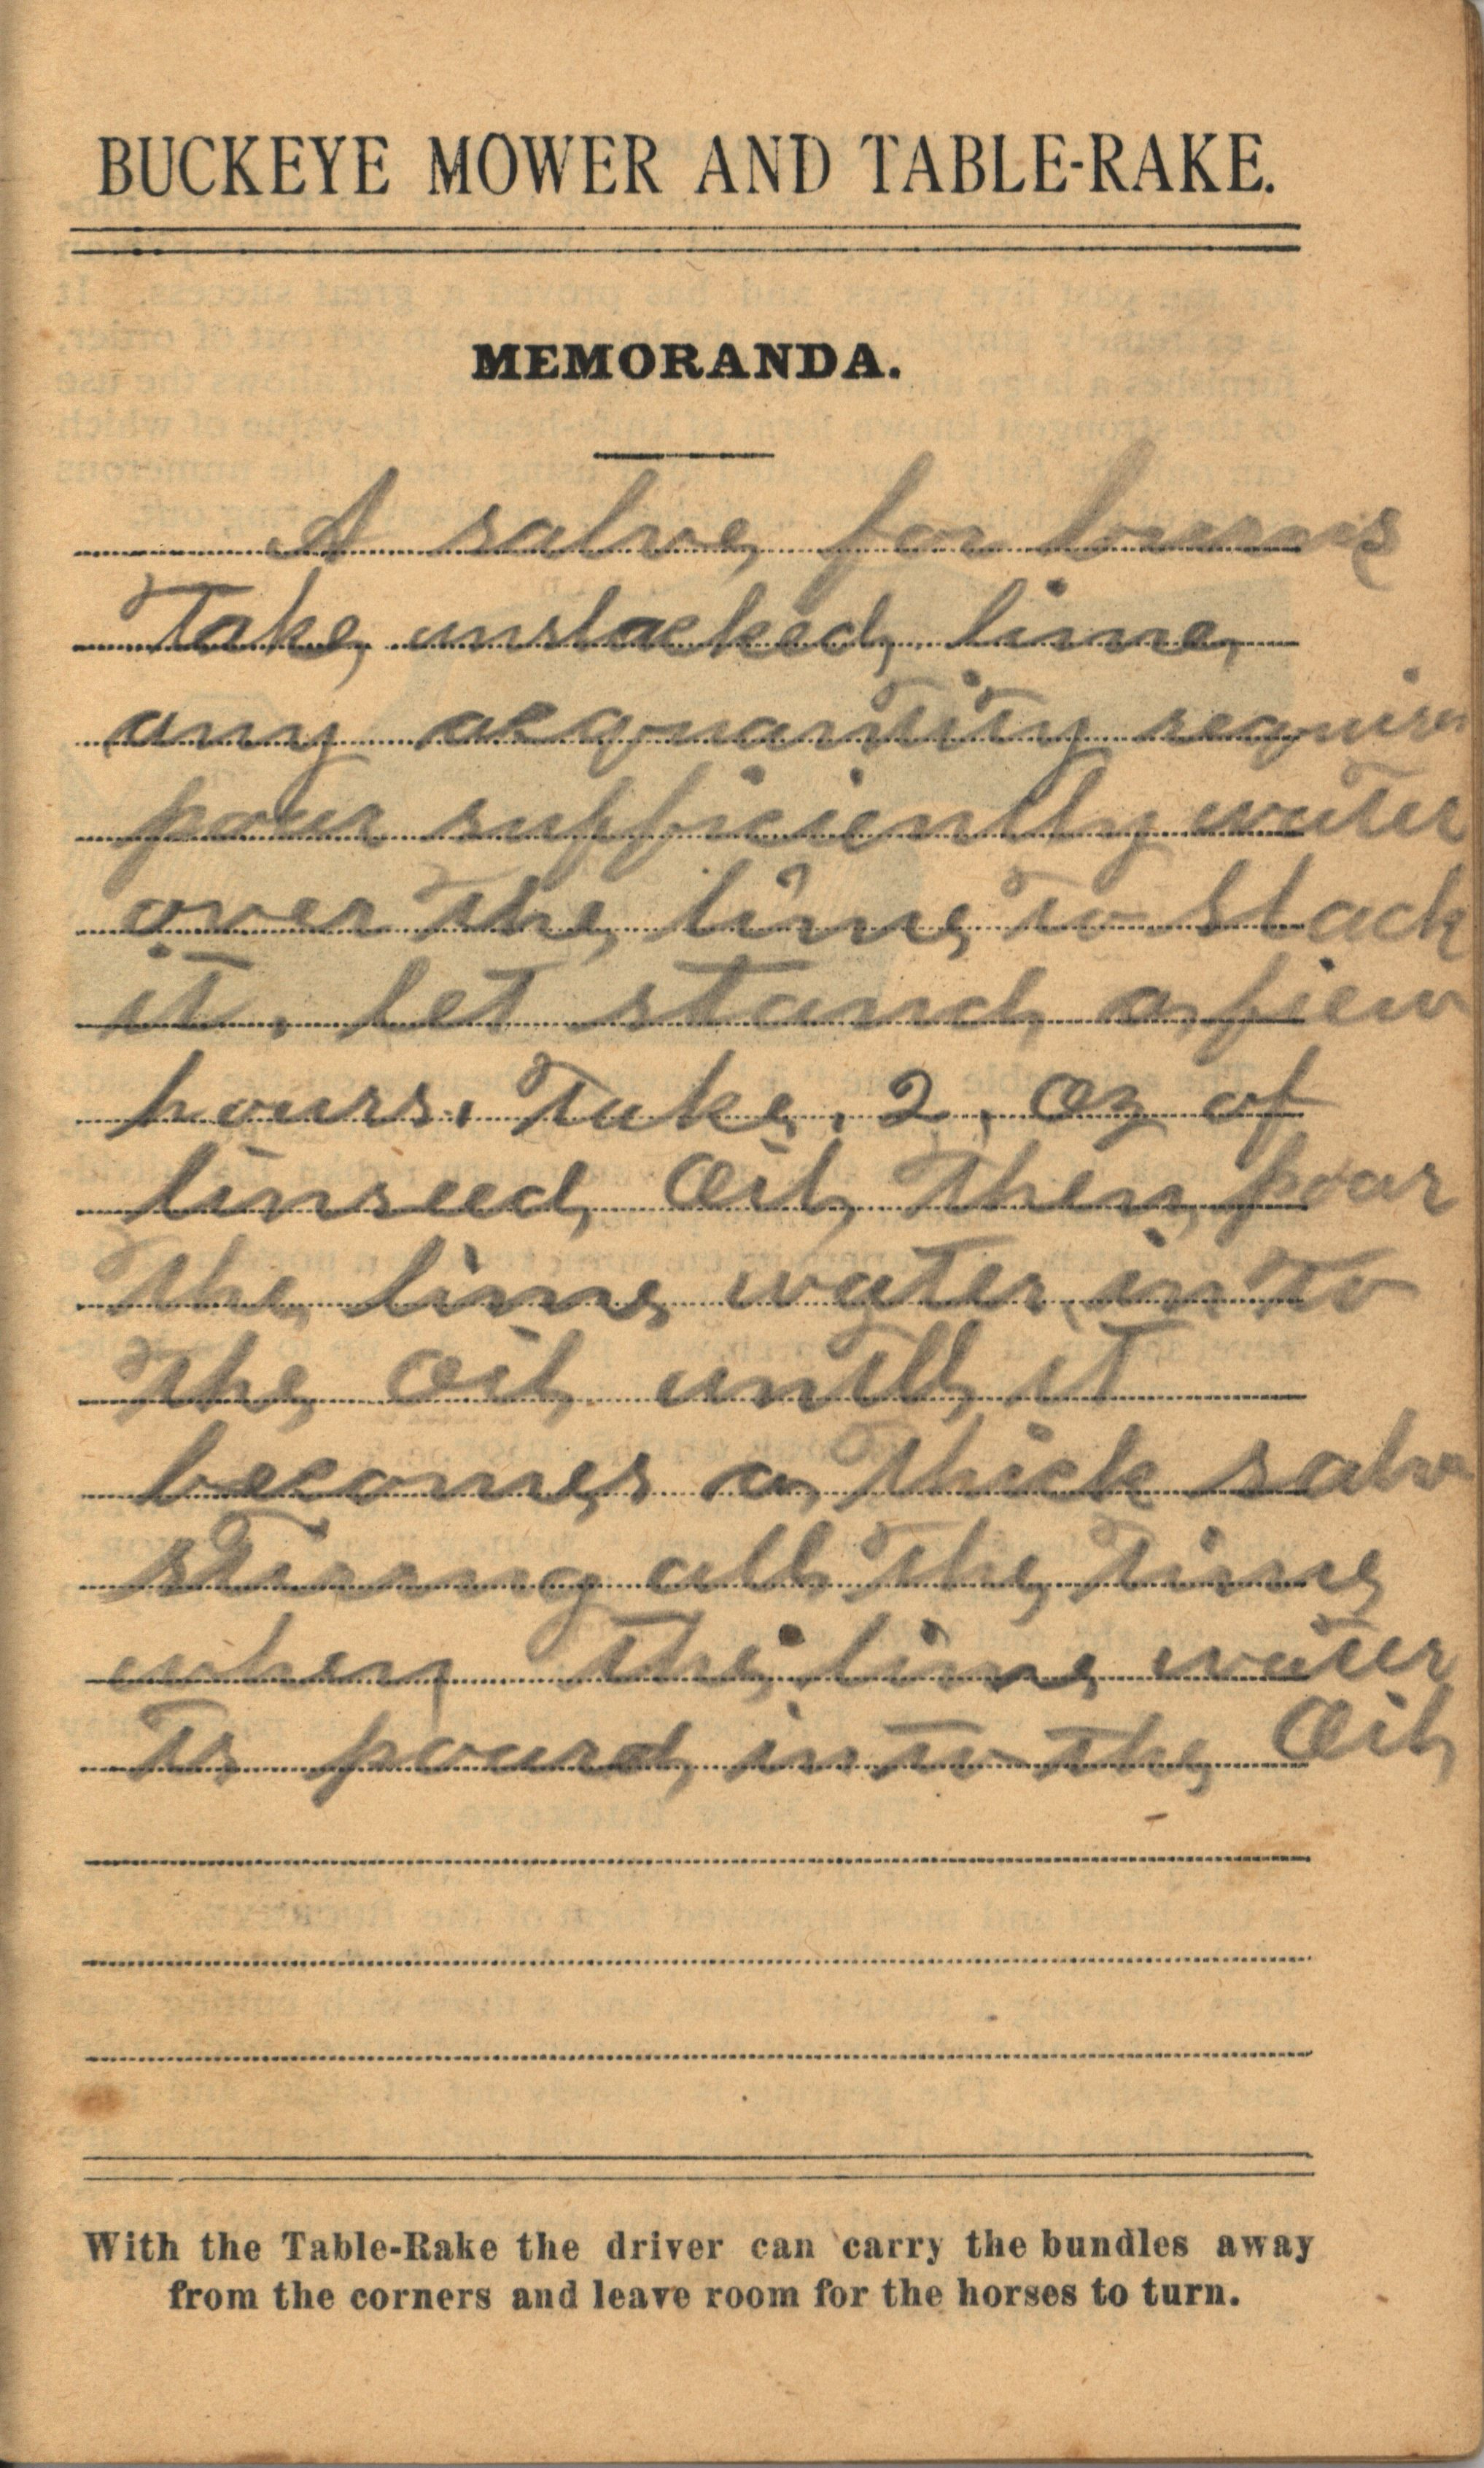 BUCKEYE MOWER AND TABLE-RAKE.
MEMORANDA.
A salve for burns
Take unslacked lime
any quantity
pour sufficiently water
over the lime to slack
it. let stand a fiew
hours. Take. 2. oz of
linseed Oil then pour
the lime water in to
the oil untill it
becomes a thick salv
stirring all the time
when the lime water
is pourd in to the Oil
With the Table-Rake the driver can carry the bundles away
from the corners and leave room for the horses to turn.